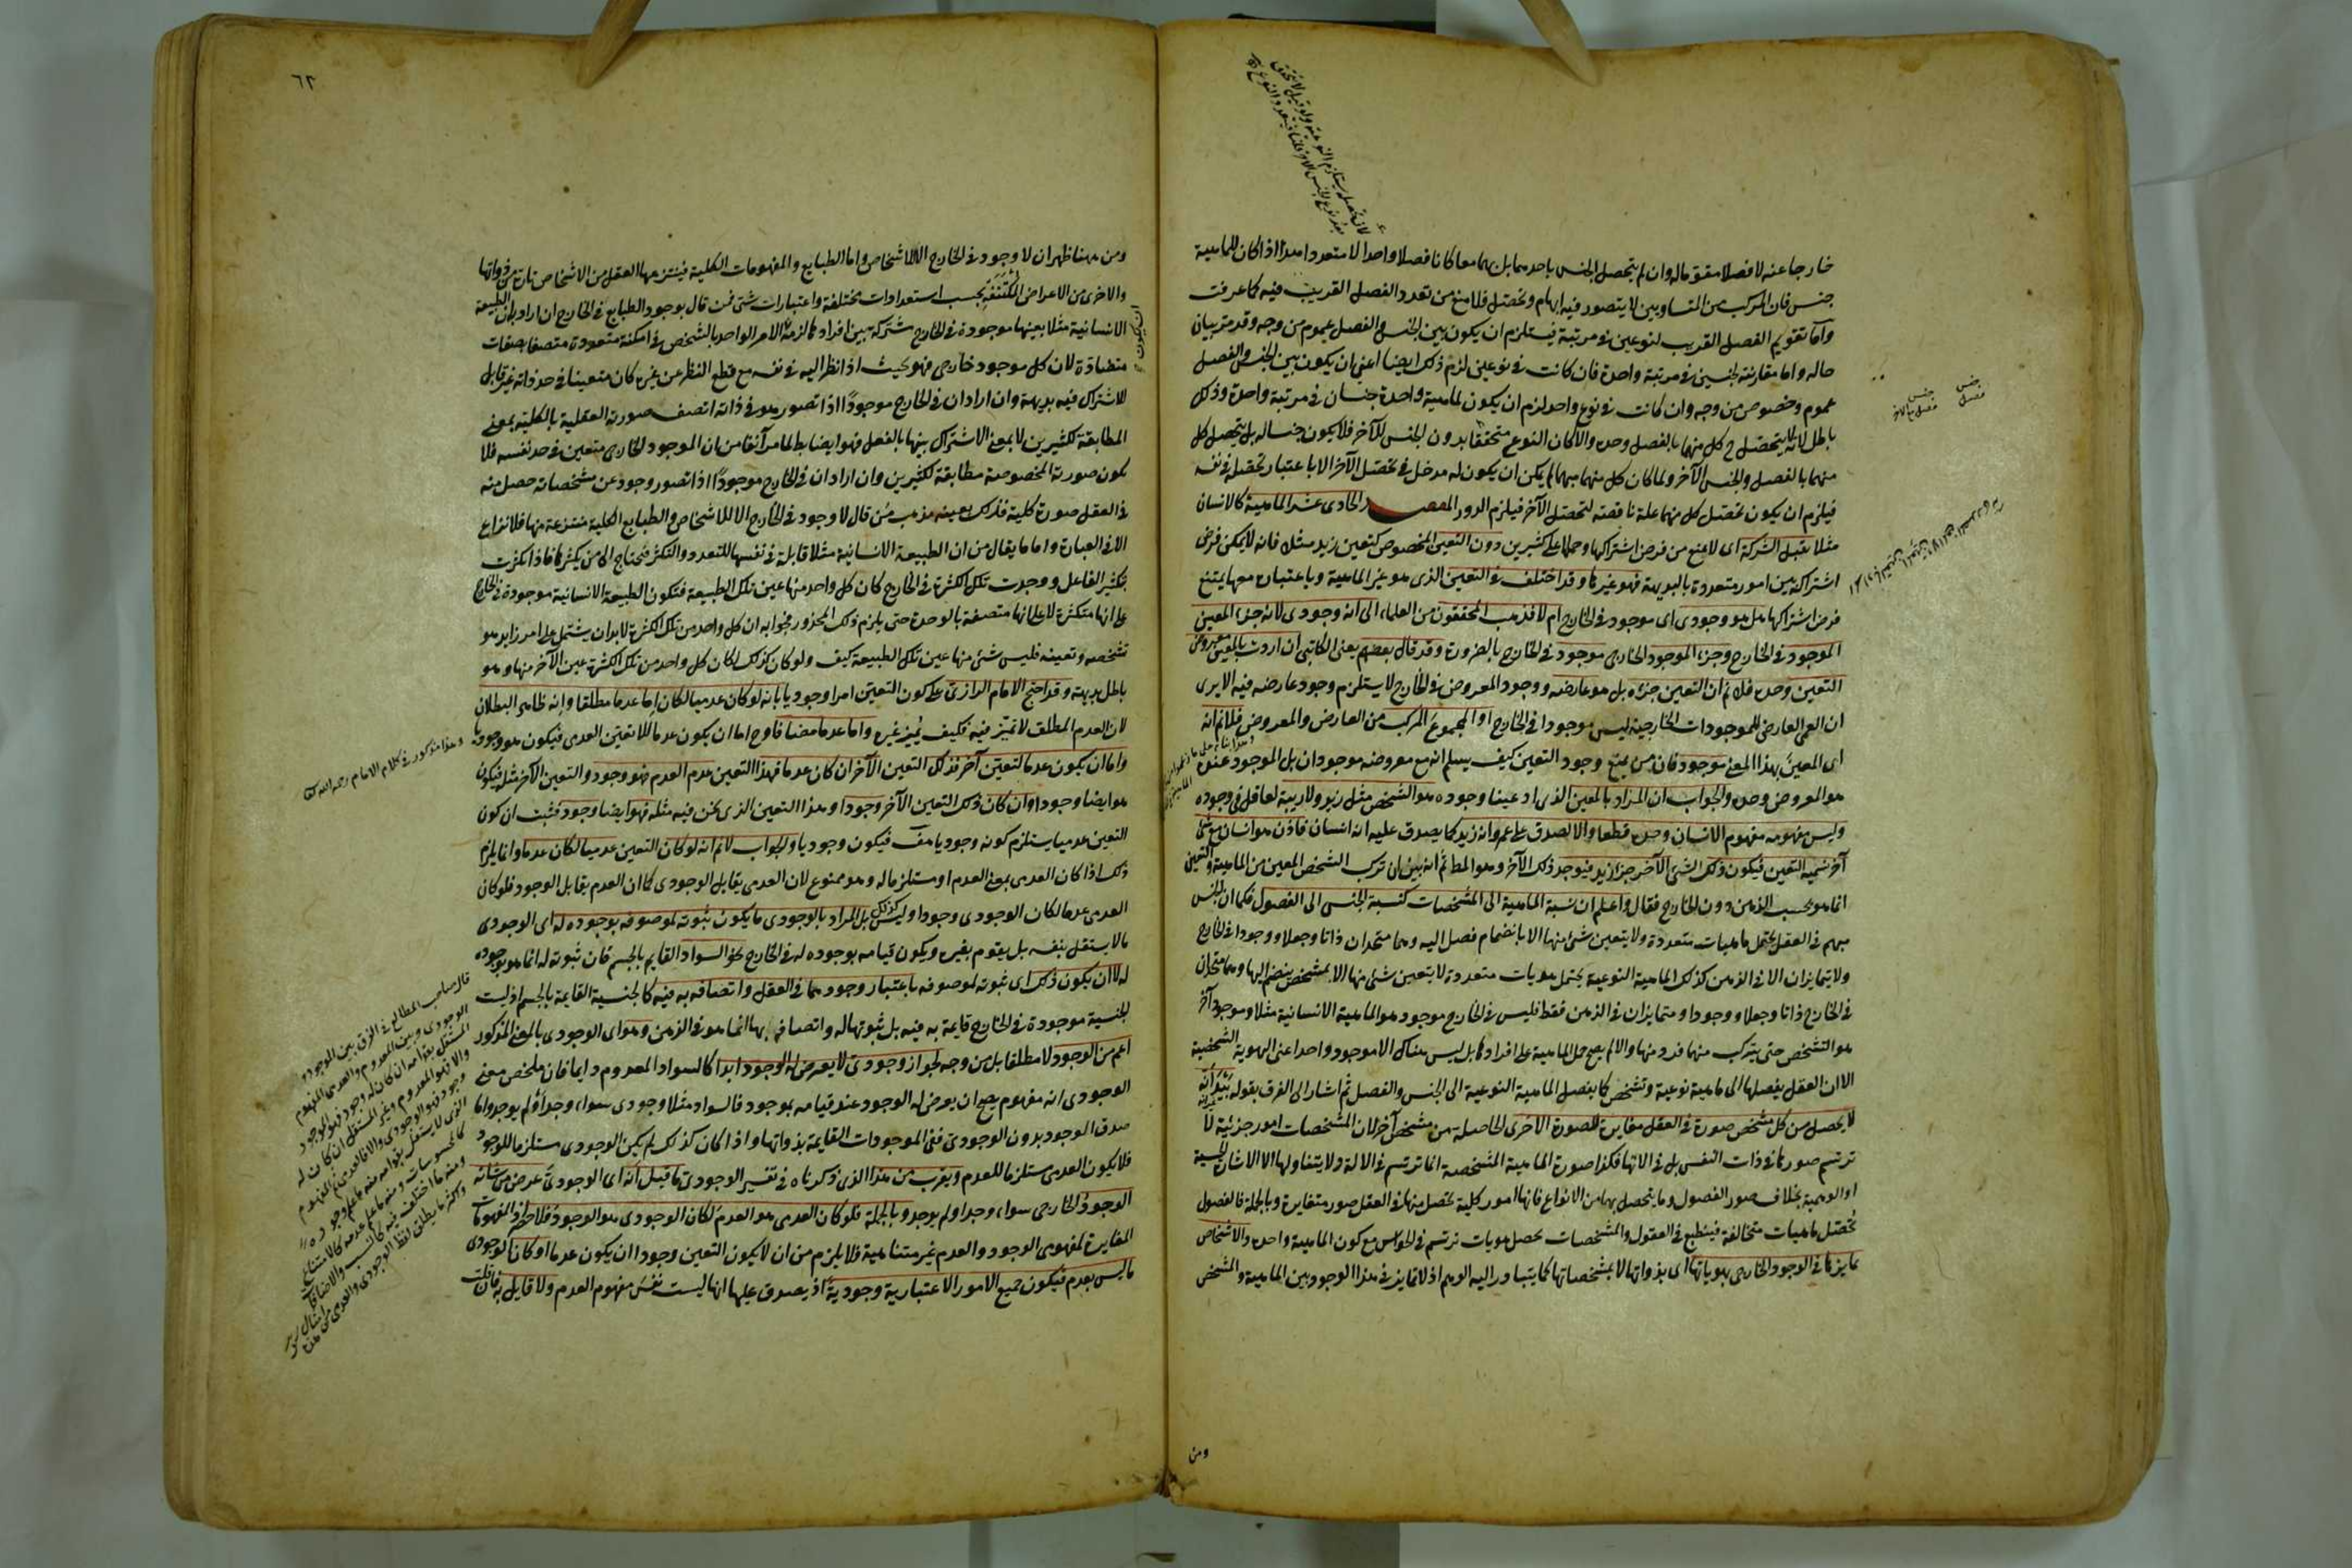 خارجا عنه لا فصلا مقوماله وان لم يتحصل الجنس باحدهما بل بهما معا كانا فصلا واحدا لا متعددا هذا اذا كان للماهية
جنس فان المركب من المتساويين لا يتصور فيه ابهام وتحصل فلا منع من تعدد الفصل القريب فيه كما عرفت
واما تقويم الفصل القريب لنوعين في مرتبة فيستلزم ان يكون بين الجنس والفصل عموم من وجه وقد مر بيان
حاله واما مقارنته لجنسين في مرتبة واحدة فان كانت في نوعين لزم ذلك ايضا اعني ان يكون بين الجنس والفصل
عموم وخصوص من وجه وان كانت في نوع واحد لزم ان يكون لماهية واحدة جنسان في مرتبة واحدة وذلك
باطل لانه لا يتحصل ح كل منهما بالفصل وحده والا كان النوع متحققا بدون الجنس الآخر فلا يكون جنسا له بل يتحصل كل
منهما بالفصل والجنس الآخر ولما كان كل منهما مبهما لم يكن ان يكون له مدخل في تحصل الآخر الا باعتبار تحصله في نفسه
فيلزم ان يكون تحصل كل منهما علة ناقصة لتحصل الآخر فيلزم الدور المقصد الحادى عشر الماهية كالانسان
مثلا تقبل الشركة اى لا يمنع من فرض اشتراكها وحملها على كثيرين دون التعين المخصوص كتعين زيد مثلا فانه لا يمكن فرض
اشتراكه بين امور متعددة بالبديهة فهو غيرها وقد اختلف في التعين الذى هو غير الماهية وباعتباره معها يمتنع
فرض اشتراكها هل هو وجودى اى موجود في الخارج ام لا فذهب المحققون من العلماء الى انه وجودى لانه جزء المعين
الموجود في الخارج وجزء الموجود الخارجى موجود في الخارج بالضرورة وقد قال بعضهم يعنى الكاتبى ان اردت بالمعين معروض
التعين وحده فلا نم ان التعين جزءه بل هو عارضه ووجود المعروض في الخارج لا يستلزم وجود عارضه فيه الا يرى
ان العمى العارض للموجودات الخارجية ليس موجودا في الخارج او المجموع المركب من العارض والمعروض فلا نم انه
اى المعين بهذا المعنى موجود فان من يمنع وجود التعين كيف يسلم انه مع معروضه موجودان بل الموجود عنده
هو المعروض وحده والجواب ان المراد بالمعين الذى ادعينا وجوده هو الشخص مثل زيد ولا ريبة لعاقل في وجوده
وليس مفهومه مفهوم الانسان وحده قطعا والا لصدق على عمرو انه زيد كما يصدق عليه انه انسان فاذن هو انسان مع شئ
آخر نسميه التعين فيكون ذلك الشئ الآخر جزء زيد فيوجد ذلك الآخر وهو المطلوب ثم انه بين ان تركب الشخص المعين من الماهية والتعين
انما هو بحسب الذهن دون الخارج فقال واعلم ان نسبة الماهية الى المشخصات كنسبة الجنس الى الفصول فكما ان الجنس
مبهم في العقل يحتمل ماهيات متعددة ولا يتعين شئ منها الا بانضمام فصل اليه وهما متحدان ذاتا وجعلا ووجودا في الخارج
ولا يتمايزان الا في الذهن كذلك الماهية النوعية يحتمل هويات متعددة لا يتعين شئ منها الا بمشخص ينضم اليها وهما متحدان
في الخارج ذاتا وجعلا ووجودا ومتمايزان في الذهن فقط فليس في الخارج موجود هو الماهية الانسانية مثلا وموجود آخر
هو التشخص حتى يتركب منهما فرد منها والا لم يصح حمل الماهية على افرادها بل ليس هناك الا موجود واحد اعنى الهوية الشخصية
الا ان العقل يفصلها الى ماهية نوعية وتشخص كما يفصل الماهية النوعية الى الجنس والفصل ثم اشار الى الفرق بقوله بيد انه
لا يحصل من كل مشخص صورة في العقل مغايرة للصورة الاخرى الحاصلة من مشخص آخر لان المشخصات امور جزئية لا
ترتسم صورها في ذات النفس بل في الاتها فكذا صورة الماهية المشخصة انما ترتسم في الالة ولا يتناولها الا الاشارة الحسية
او الوهمية بخلاف صور الفصول وما يتحصل بها من الانواع فانها امور كلية تحصل منها في العقل صور متغايرة وبالجملة فالفصول
تحصل ماهيات متخالفة فينطبع في العقول والمشخصات يحصل هويات ترتسم في الحواس مع كون الماهية واحدة والاشخاص
تمايزها في الوجود الخارجى بهوياتها اى بذواتها لا بمشخصاتها كما يتبادر اليه الوهم اذ لا تمايز في هذا الوجود بين الماهية والشخص
ومن
جنس
فصل
٦٢
ومن ههنا ظهر ان لا وجود في الخارج الا للاشخاص واما الطبايع والمفهومات الكلية فينتزعها العقل من الاشخاص تارة من ذواتها
والاخرى من الاعراض المكتنفة بحسب استعدادات مختلفة واعتبارات شتى فمن قال بوجود الطبايع في الخارج ان اراد به ان الطبيعة
الانسانية مثلا بعينها موجودة في الخارج مشتركة بين افرادها لزمه ان يكون الامر الواحد بالشخص في امكنة متعددة متصفا بصفات
متضادة لان كل موجود خارجى فهو بحيث اذا نظر اليه في نفسه مع قطع النظر عن غيره كان متعينا في حد ذاته غير قابل
للاشتراك فيه بديهة وان اراد ان في الخارج موجودا اذا تصور هو في ذاته اتصف صورته العقلية بالكلية بمعنى
المطابقة لكثيرين لا بمعنى الاشتراك بينها بالفعل فهو ايضا باطل لما مر آنفا من ان الموجود الخارجى متعين في حد نفسه فلا
يكون صورته المخصوصة مطابقة لكثيرين وان اراد ان في الخارج موجودا اذا تصور وجرد عن مشخصاته حصل منه
في العقل صورة كلية فذلك بعينه مذهب من قال لا وجود في الخارج الا للاشخاص والطبايع الكلية منتزعة منها فلا نزاع
الا في العبارة واما ما يقال من ان الطبيعة الانسانية مثلا قابلة في نفسها للتعدد والتكثر فتحتاج الى من يكثرها فاذا تكثرت
بتكثير الفاعل ووجدت تلك الكثرة في الخارج كان كل واحد منها عين تلك الطبيعة فتكون الطبيعة الانسانية موجودة في الخارج
على انها متكثرة لا على انها متصفة بالوحدة حتى يلزم ذلك المحذور فجوابه ان كل واحد من تلك الكثرة لابد ان يشتمل على امر زايد هو
تشخصه وتعينه فليس شئ منها عين تلك الطبيعة كيف ولو كان كذلك لكان كل واحد من تلك الكثرة عين الآخر منها وهو
باطل بديهة وقد احتج الامام الرازى على كون التعين امرا وجوديا بانه لو كان عدميا لكان اما عدما مطلقا وانه ظاهر البطلان
لان العدم المطلق لا تميز فيه فكيف يميز غيره واما عدما مضافا وح اما ان يكون عدما للاتعين العدمى فيكون هو وجوديا
واما ان يكون عدما لتعين آخر فذلك التعين الآخر ان كان عدما فهذا التعين عدم العدم فهو وجود والتعين الآخر مثله فيكون
هو ايضا وجودا وان كان ذلك التعين الآخر وجودا وهذا التعين الذى نحن فيه مثله فهو ايضا وجود فثبت ان كون
التعين عدميا يستلزم كونه وجوديا هف فيكون وجوديا والجواب لا نم انه لو كان التعين عدميا لكان عدما وانما يلزم
ذلك اذا كان العدمى بمعنى العدم او مستلزما له وهو ممنوع لان العدمى يقابل الوجودى كما ان العدم يقابل الوجود فلو كان
العدمى عدما لكان الوجودى وجودا وليس كذلك بل المراد بالوجودى ما يكون ثبوته لموصوفه بوجوده له اى الوجودى
ما لا يستقل بنفسه بل يقوم بغيره ويكون قيامه بوجوده له في الخارج نحو السواد القايم بالجسم فان ثبوته له انما هو بوجوده
له لا ان يكون ذلك اى ثبوته لموصوفه باعتبار وجودهما في العقل واتصافه به فيه كالجنسية القايمة بالجسم اذ ليست
الجنسية موجودة في الخارج قايمة به فيه بل ثبوتها له واتصافه بها انما هو في الذهن وهو اى الوجودى بالمعنى المذكور
اعم من الوجود لا مطلقا بل من وجه لجواز وجودى لا يعرض له الوجود ابدا كالسواد المعدوم دايما فان ملخص معنى
الوجودى انه مفهوم يصح ان يعرض له الوجود عند قيامه بموجود فالسواد مثلا وجودى سواء وجد او لم يوجد واما
صدق الوجود بدون الوجودى ففى الموجودات القايمة بذواتها واذا كان كذلك لم يكن الوجودى مستلزما للوجود
فلا يكون العدمى مستلزما للعدم ويقرب من هذا الذى ذكرناه في تفسير الوجودى ما قيل انه اى الوجودى عرض من شانه
الوجود الخارجى سواء وجد او لم يوجد وبالجملة فلو كان العدمى هو العدم لكان الوجودى هو الوجود فلا حد المفهومات
المغايرة لمفهومى الوجود والعدم غير متناهية فلا يلزم من ان لا يكون التعين وجودا ان يكون عدما او كان الوجودى
ما ليس بعدم فيكون جميع الامور الاعتبارية وجودية اذ يصدق عليها انها ليست نفس مفهوم العدم ولا قايل به فان قلت
وهذا مذكور في كلام الامام رحمه الله
قال صاحب المطالع في الفرق بين الموجود و
الوجودى وبين المعدوم والعدمى المفهوم